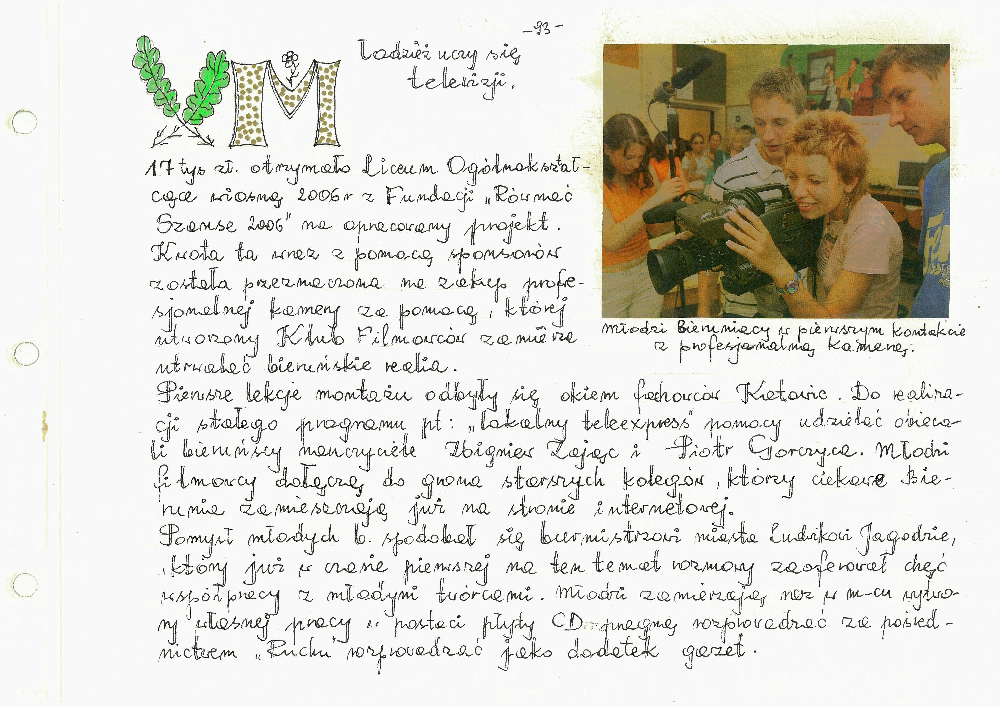 -93-
M łodzież uczy się
telewizji.
17 tys zł. otrzymało Liceum Ogólnokształ-
cące wiosną 2006r z Fundacji „Równać
Szanse 2006" na opracowany projekt.
Kwota ta wraz z pomocą sponsorów
została przeznaczona na zakup profe-
sjonalnej kamery za pomocą, której
utworzony Klub Filmowców zamierza
utrwalać bieruńskie realia.
Pierwsze lekcje montażu odbyły się okiem fachowców Katowic. Do realiza-
cji stałego programu pt: „Lokalny teleexpress" pomocy udzielać obieca-
li bieruńscy nauczyciele Zbigniew Zając i Piotr Gorczyca. Młodzi
filmowcy dołączą do grona starszych kolegów, którzy ciekawe Bie-
runia zamieszczają już na stronie internetowej.
Pomysł młodych b. spodobał się burmistrzowi miasta Ludwikowi Jagodzie,
który już w czasie pierwszej na ten temat rozmowy zaoferował chęć
współpracy z młodymi twórcami. Młodzi zamierzają raz w m-cu wytwo-
ry własnej pracy w postaci płyty CD pragną rozprowadzać za pośred-
nictwem „Ruchu" rozprowadzać jako dodatek gazet.
Młodzi Bieruniacy w pierwszym kontakcie
z profesjonalną kamerą.